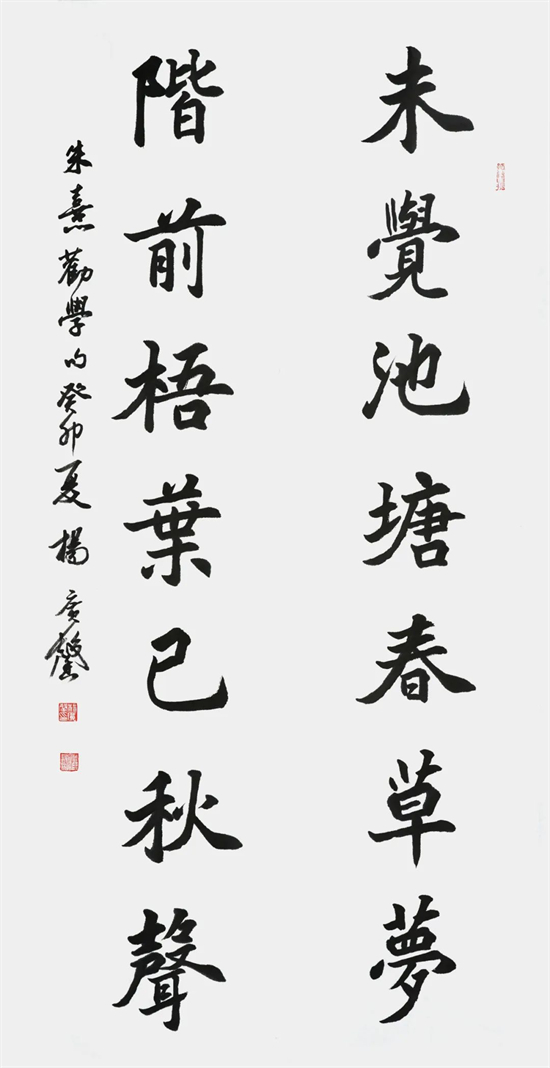 未覺池塘春草夢
階前梧葉已秋聲
朱熹勸學句癸卯夏楊廣